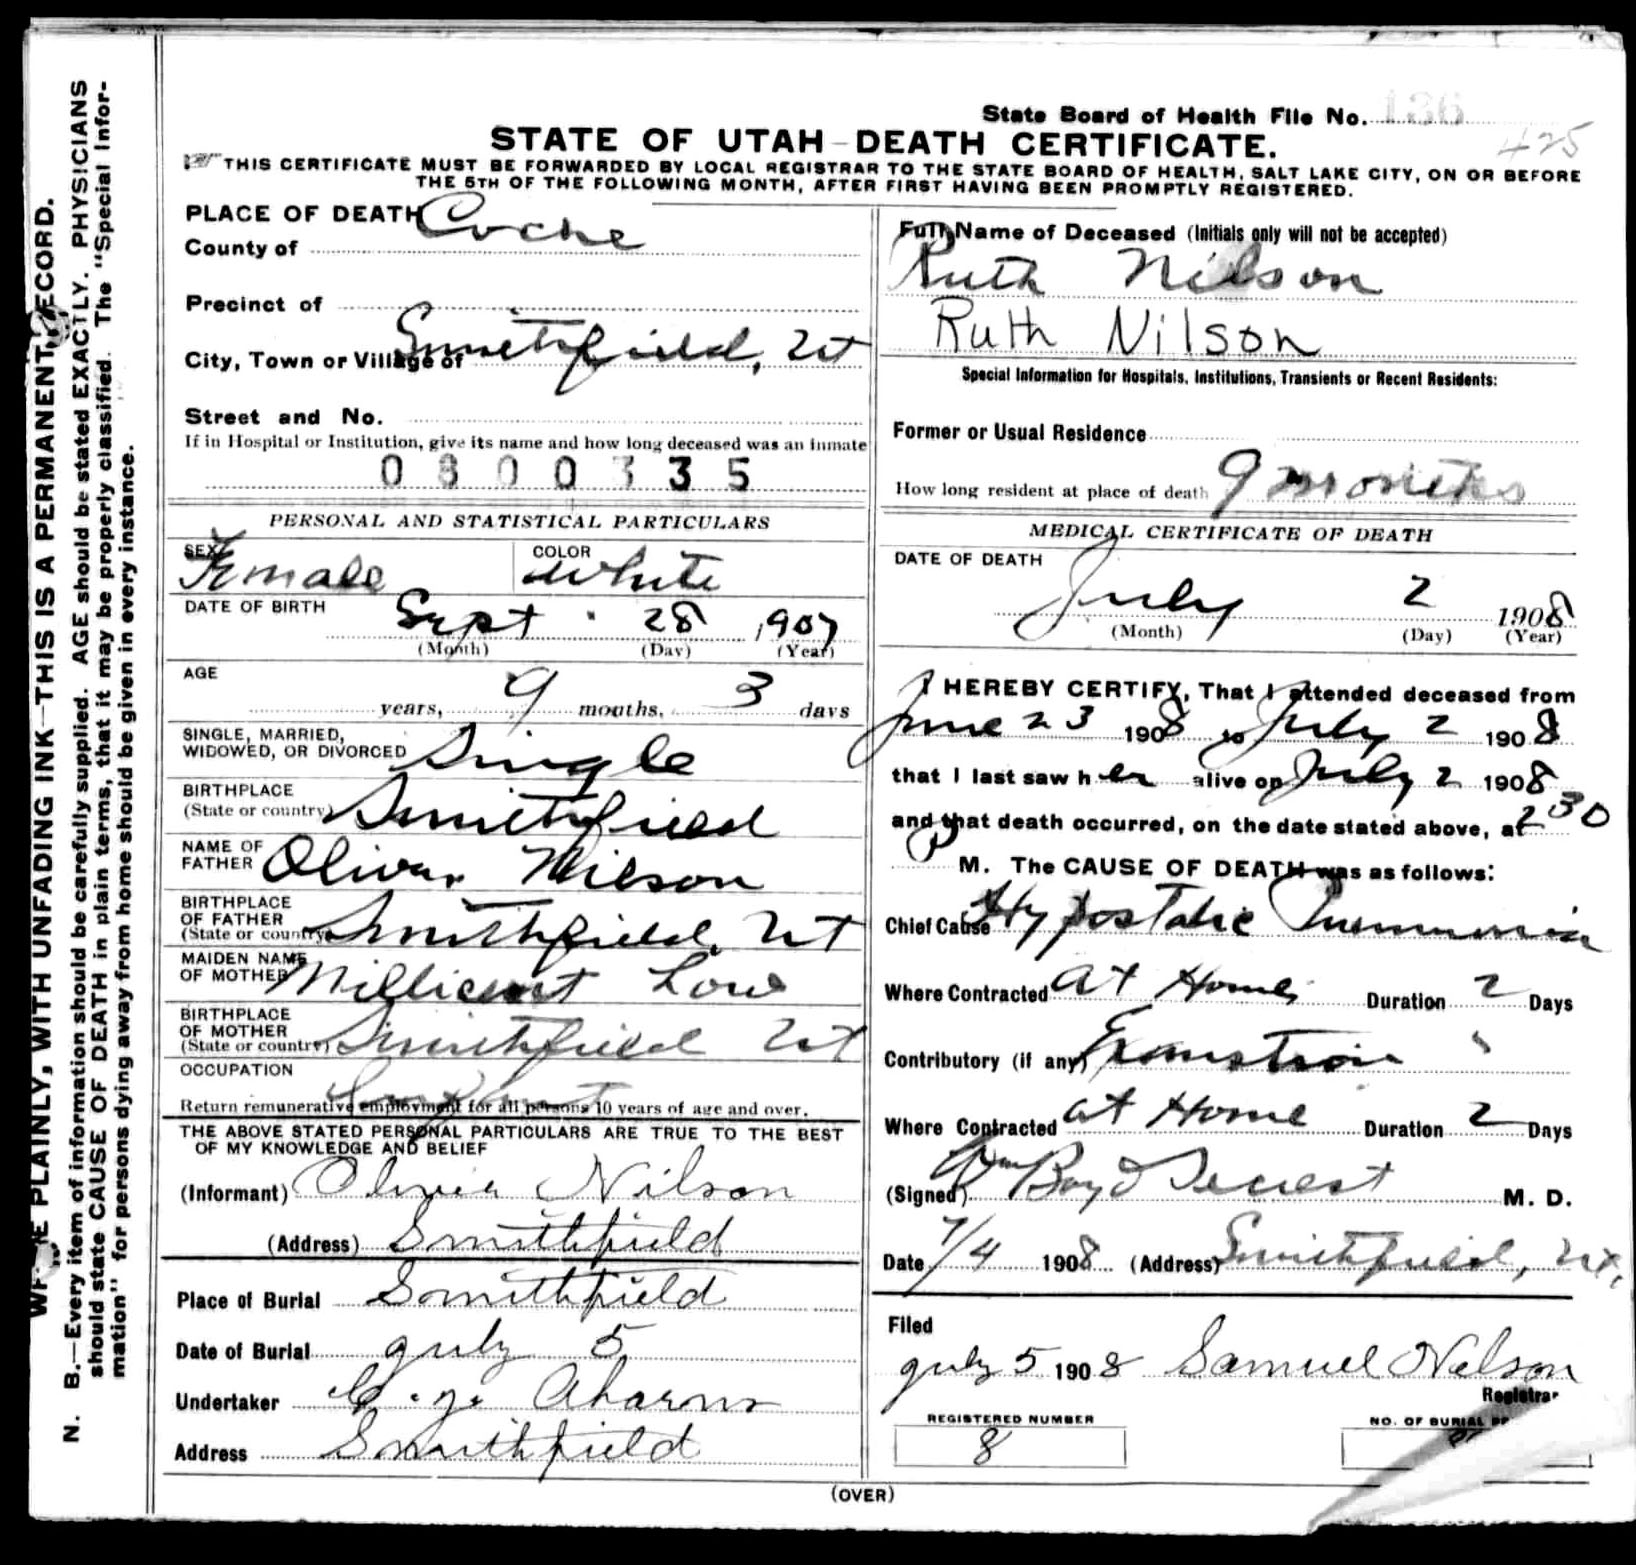 State Board of Health File No. 136
425
STATE OF UTAH-DEATH CERTIFICATE.
THIS CERTIFICATE MUST BE FORWARDED BY LOCAL REGISTRAR TO THE STATE BOARD OF HEALTH, SALT LAKE CITY, ON OR BEFORE
THE 5TH OF THE FOLLOWING MONTH, AFTER FIRST HAVING BEEN PROMPTLY REGISTERED.
WRITE PLAINLY, WITH UNFADING INK—THIS IS A PERMANENT RECORD.
N. B.—Every item of information should be carefully supplied. AGE should be stated EXACTLY. PHYSICIANS
should state CAUSE OF DEATH in plain terms, that it may be properly classified. The "Special Infor-
mation" for persons dying away from home should be given in every instance.
PLACE OF DEATH
County of Cache
Precinct of
City, Town or Village of Smithfield, Ut
Street and No.
If in Hospital or Institution, give its name and how long deceased was an inmate
0300335
PERSONAL AND STATISTICAL PARTICULARS
SEX Female COLOR White
DATE OF BIRTH Sept 28 1907
(Month) (Day) (Year)
AGE
years, 9 months, 3 days
SINGLE, MARRIED,
WIDOWED, OR DIVORCED Single
BIRTHPLACE
(State or country) Smithfield
NAME OF
FATHER Oliver Nilson
BIRTHPLACE
OF FATHER
(State or country) Smithfield, Ut
MAIDEN NAME
OF MOTHER Millicent Low
BIRTHPLACE
OF MOTHER
(State or country) Smithfield Ut
OCCUPATION
Infant
Return remunerative employment for all persons 10 years of age and over.
THE ABOVE STATED PERSONAL PARTICULARS ARE TRUE TO THE BEST
OF MY KNOWLEDGE AND BELIEF
(Informant) Oliver Nilson
(Address) Smithfield
Place of Burial Smithfield
Date of Burial July 5
Undertaker
Address Smithfield
Full Name of Deceased (Initials only will not be accepted)
Ruth Nilson
Ruth Nilson
Special Information for Hospitals, Institutions, Transients or Recent Residents:
Former or Usual Residence
How long resident at place of death 9 months
MEDICAL CERTIFICATE OF DEATH
DATE OF DEATH
July 2 1908
(Month) (Day) (Year)
I HEREBY CERTIFY, That I attended deceased from
June 23 1908 to July 2 1908
that I last saw her alive on July 2 1908
and that death occurred, on the date stated above, at 230
P M. The CAUSE OF DEATH was as follows:
Chief Cause Hypostatic Pneumonia
Where Contracted At Home Duration 2 Days
Contributory (if any) Exaustion "
Where Contracted at Home Duration 2 Days
(Signed) Wm Boyd M. D.
Date 7/4 1908 (Address) Smithfield, Ut,
Filed
July 5 1908 Samuel Nelson
Registrar
REGISTERED NUMBER
8
NO. OF BURIAL
(OVER)